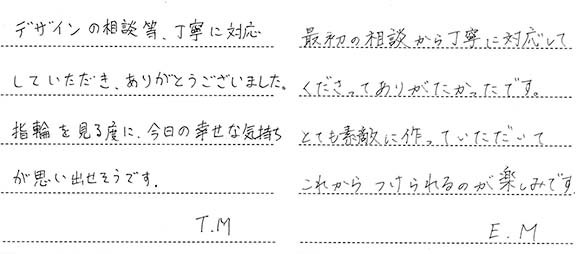 デザインの相談等、丁寧に対応
していただき、ありがとうございました。
指輪を見る度に、今日の幸せな気持ち
が思い出せそうです.
T.M
最初の相談から丁寧に対応して
くださってありがたかったです。
とても素敵に作っていただいて
これからつけられるのが楽しみです
E.M